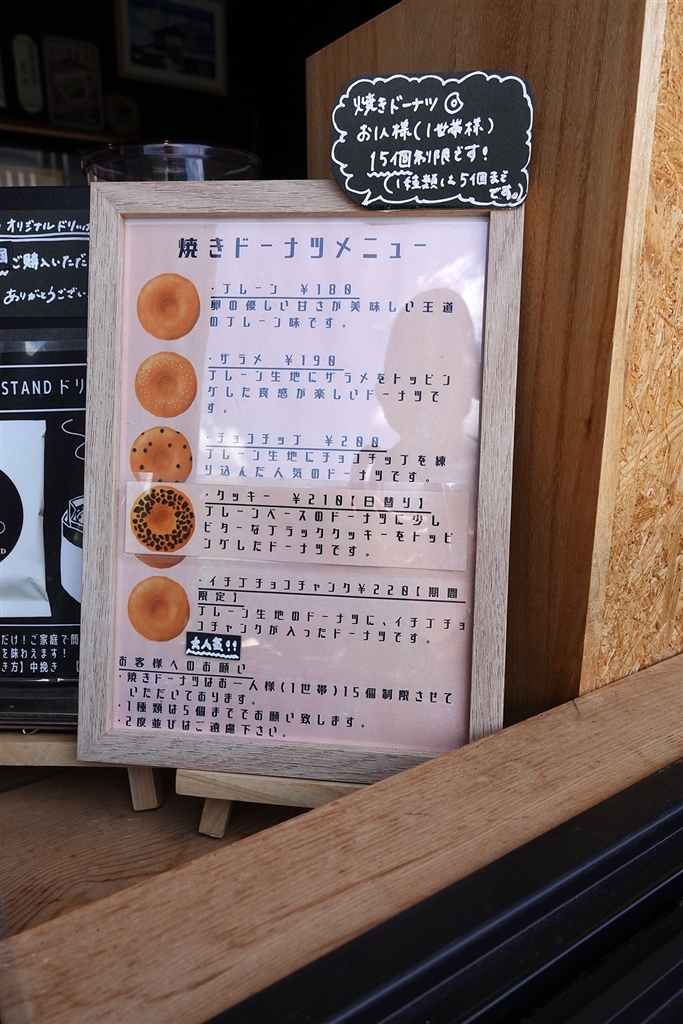 焼きドーナツ◎
お1人様(1世帯様)
15個制限です!
(1種類は5個まで
です。)
オリジナルドリップ
ご購入いただ
ありがとうござい
STANDドリ
だけ!ご家庭で簡
を味わえます!
き方】中挽き
焼きドーナツメニュー
・プレーン ¥180
卵の優しい甘さが美味しい王道
のプレーン味です。
・ザラメ ¥190
プレーン生地にザラメをトッピン
グした食感が楽しいドーナツで
す。
・チョコチップ ¥200
プレーン生地にチョコチップを練
り込んだ人気のドーナツです。
・クッキー ¥210【日替り】
プレーンベースのドーナツに少し
ビターなブラッククッキーをトッピ
ングしたドーナツです。
・イチゴチョコチャンク¥220【期間
限定】
プレーン生地のドーナツに、イチゴチョ
コチャンクが入ったドーナツです。
大人気!!
お客様へのお願い
・焼きドーナツはお一人様(1世帯)15個制限させて
いただいております。
・1種類は5個まででお願い致します。
・2度並びはご遠慮下さい。